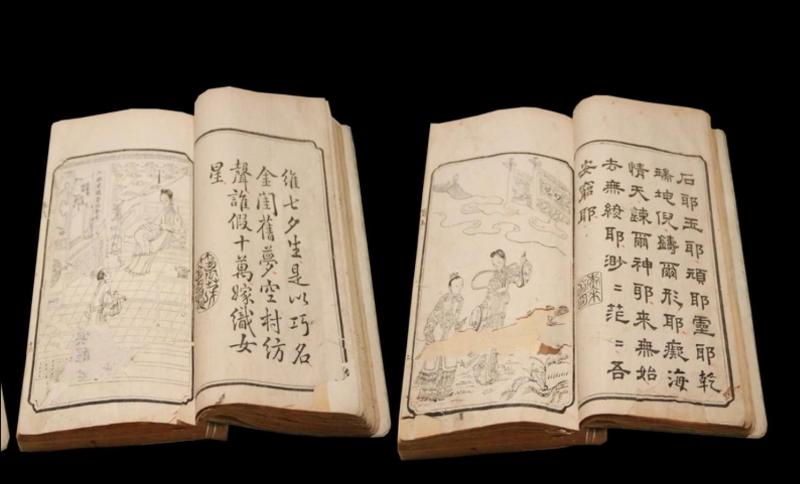 維七夕生是以巧名
金閨舊夢空村紡
聲誰假十萬嫁織女
星
石耶玉耶頑耶靈耶乾
端坤倪鑄爾形耶癡海
情天諫爾神耶來無始
去無終耶渺〻茫〻吾
安窮耶